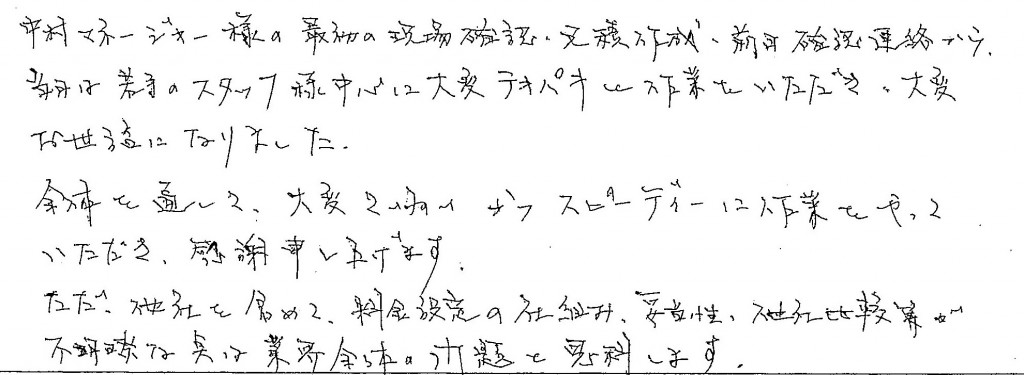 中村マネージャー様の最初の現場確認、見積作成、前日確認連絡から、
当日は若手のスタッフ様中心に大変テキパキと作業をいただき、大変
お世話になりました。
全体を通して、大変ていねいかつスピーディーに作業をやって
いただき、感謝申し上げます。
ただ、他社を含めて、料金設定の仕組み、妥当性、他社比較等が
不明瞭な点は業界全体の課題と思料します。